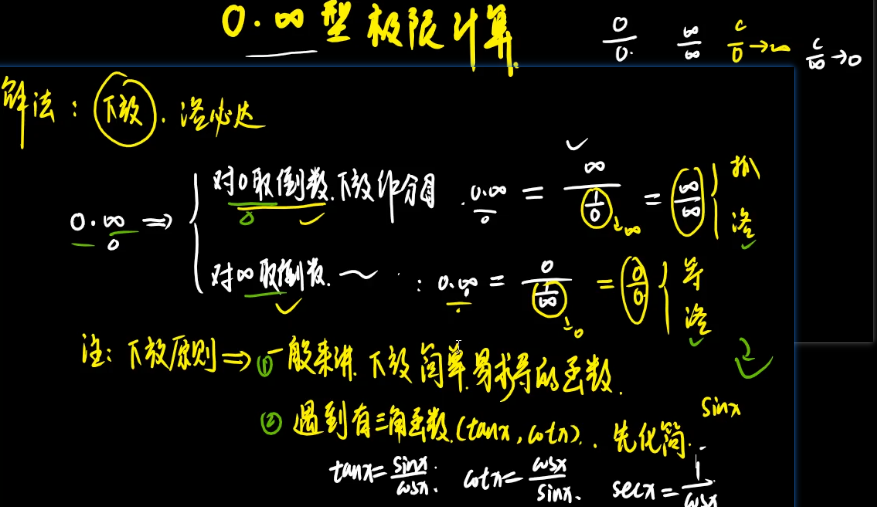 0·∞型极限计算. 0/0. ∞/∞ c/0→∞ c/∞→0
解法：下放. 洛必达
对0取倒数.下放作分母 0·∞ = ∞/(1/0)→∞ = ∞/∞ { 抓 洛
0·∞ ⇒ {
对∞取倒数. ～ : 0·∞ = 0/(1/∞)→0 = 0/0 { 等 洛
注: 下放原则 ⇒ ①一般来讲.下放简单.易求导的函数.
② 遇到有三角函数(tanx, cotx). 先化简. sinx
tanx=sinx/cosx; cotx=cosx/sinx. secx=1/cosx